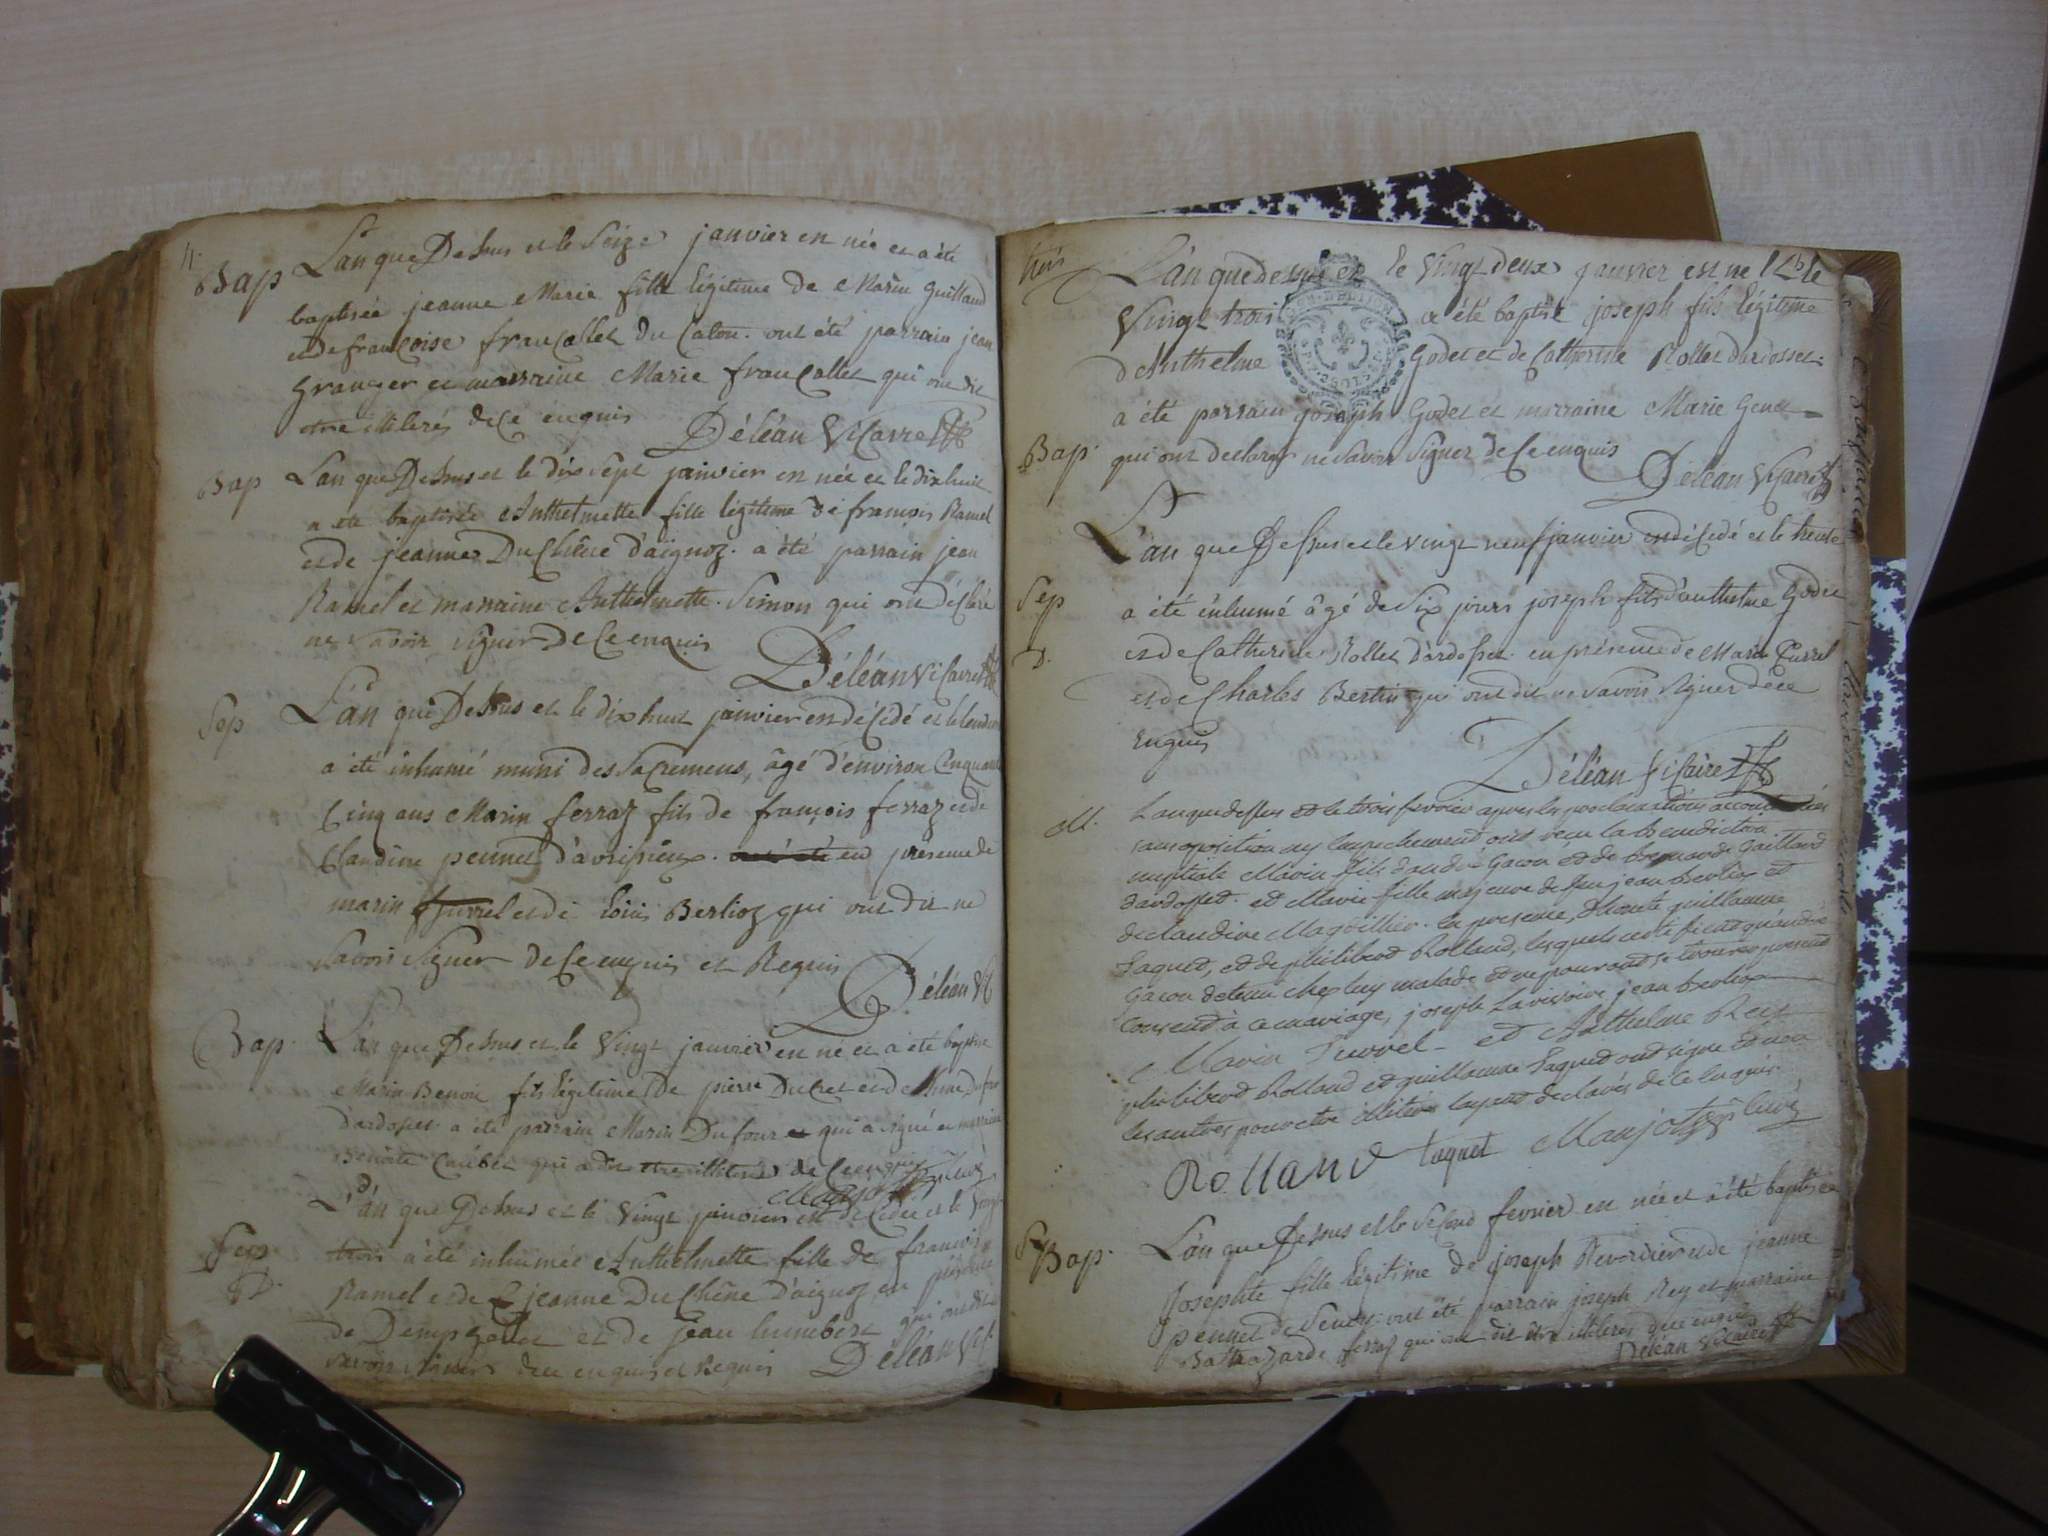 4.
Bap L'an que Dessus et le Seize janvier en née et a été
baptisée jeanne Marie fille légitime de Marin Guilland
et de françoise francallet du Calon. ont été parrain jean
Granger et marraine Marie francallet qui ont dit
etre illiterés de ce enquis Déléan Vicaire
Bap L'an que Dessus et le dix sept janvier en née et le dix huit
a été baptisée Anthelmette fille légitime de françois Ramel
et de jeanne DuChêne d'aignoz. a été parrain jean
Ramel et marraine Anthelmette Simon qui ont déclaré
ne savoir signer de ce enquis Déléan Vicaire
Sep L'an que Dessus et le dix huit janvier en décédé et le lendem
a été inhumé muni des Sacremens, âgé d'environ Cinquante
Cinq ans Marin ferraz fils de françois ferraz et de
Claudine pennet d'avrisieux. en présence de
marin purrel et de loüis Berlioz qui ont dit ne
savoir signer de ce enquis et Requis
Déléan V
Bap. L'an que Dessus et le Vingt janvier en né et a été baptisé
Marin Benoit fils légitime de pierre Ducret et de Anne Dufour
d'ardosset a été parrain Marin Dufour qui a signé et marraine
Benoite qui a dit etre illiterée de ce enquis
L'an que Dessus et le Vingt janvier est décédée et le Vingt
Sep trois a été inhumée Anthelmette fille de françois
D. Ramel et de jeanne DuChêne d'aignoz, en présence
de et de jean humbert qui ont dit
savoir signer de ce enquis et Requis Déléan Vi
trois L'an que dessus et le Vingt deux janvier est né le
Vingt trois a été baptisé joseph fils légitime
d'Anthelme Godet et de Catherine Rollet d'ardosset.
a été parrain joseph Godet et marraine Marie Genet
Bap. qui ont declarés ne savoir signer de ce enquis
Déléan Vicaire
L'an que Dessus et le vingt neuf janvier en décédé et le trente
Sep a été inhumé âgé de six jours joseph fils d'anthelme Godet
D. et de Catherine Rollet d'ardosset. en présence de Marin Purrel
et de Charles Bertin qui ont dit ne savoir signer de ce
enquis
Déléan Vicaire
M. L'an que dessus et le trois fevrier apres les proclamations accoutumées
sans oposition ny empechement ont reçu la benediction
nuptiale Marin fils d'andré Gacon et de bernarde Gaillard
d'ardosset. et Marie fille majeure de feu jean berlioz et
de claudine Magdillier. En presence, d'honete guillaume
taquet, et de philibert Rolland, lesquels certifient qu'andré
Gacon detenu chez luy malade et ne pouvant se trouver present
consent à ce mariage, joseph Lavisoire jean berlioz
Marin Purrel et Anthelme Rey
philibert Rolland et guillaume taquet ont signé et non
les autres pour etre illiterés layant declarés de ce enquis.
Rolland taquet Manjot curé
Bap. L'an que Dessus et le second fevrier en née et a été baptisée
Josephte fille légitime de joseph Reverdier et de jeanne
pennet de Senoy. ont été parrain joseph Rey et marraine
Baltazarde ferraz qui ont dit être illiterés de ce enquis
Déléan Vicaire